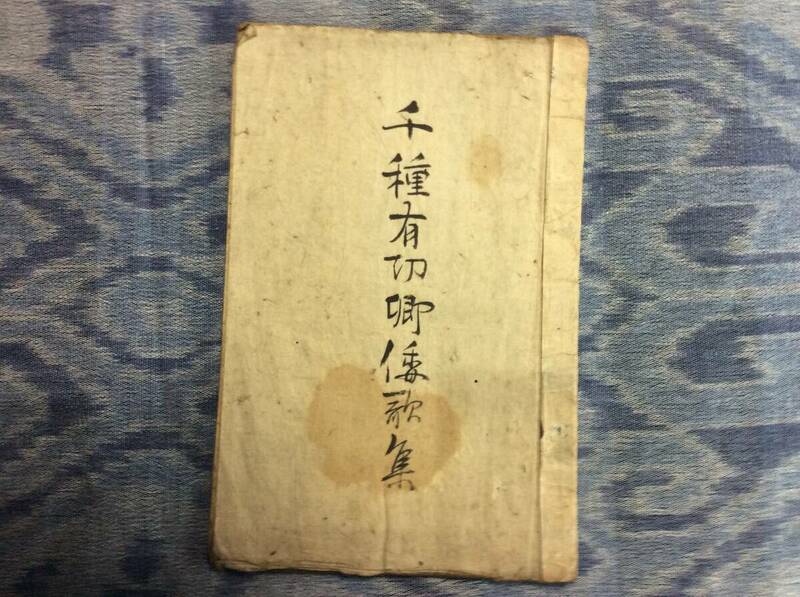 千種有功卿倭歌集